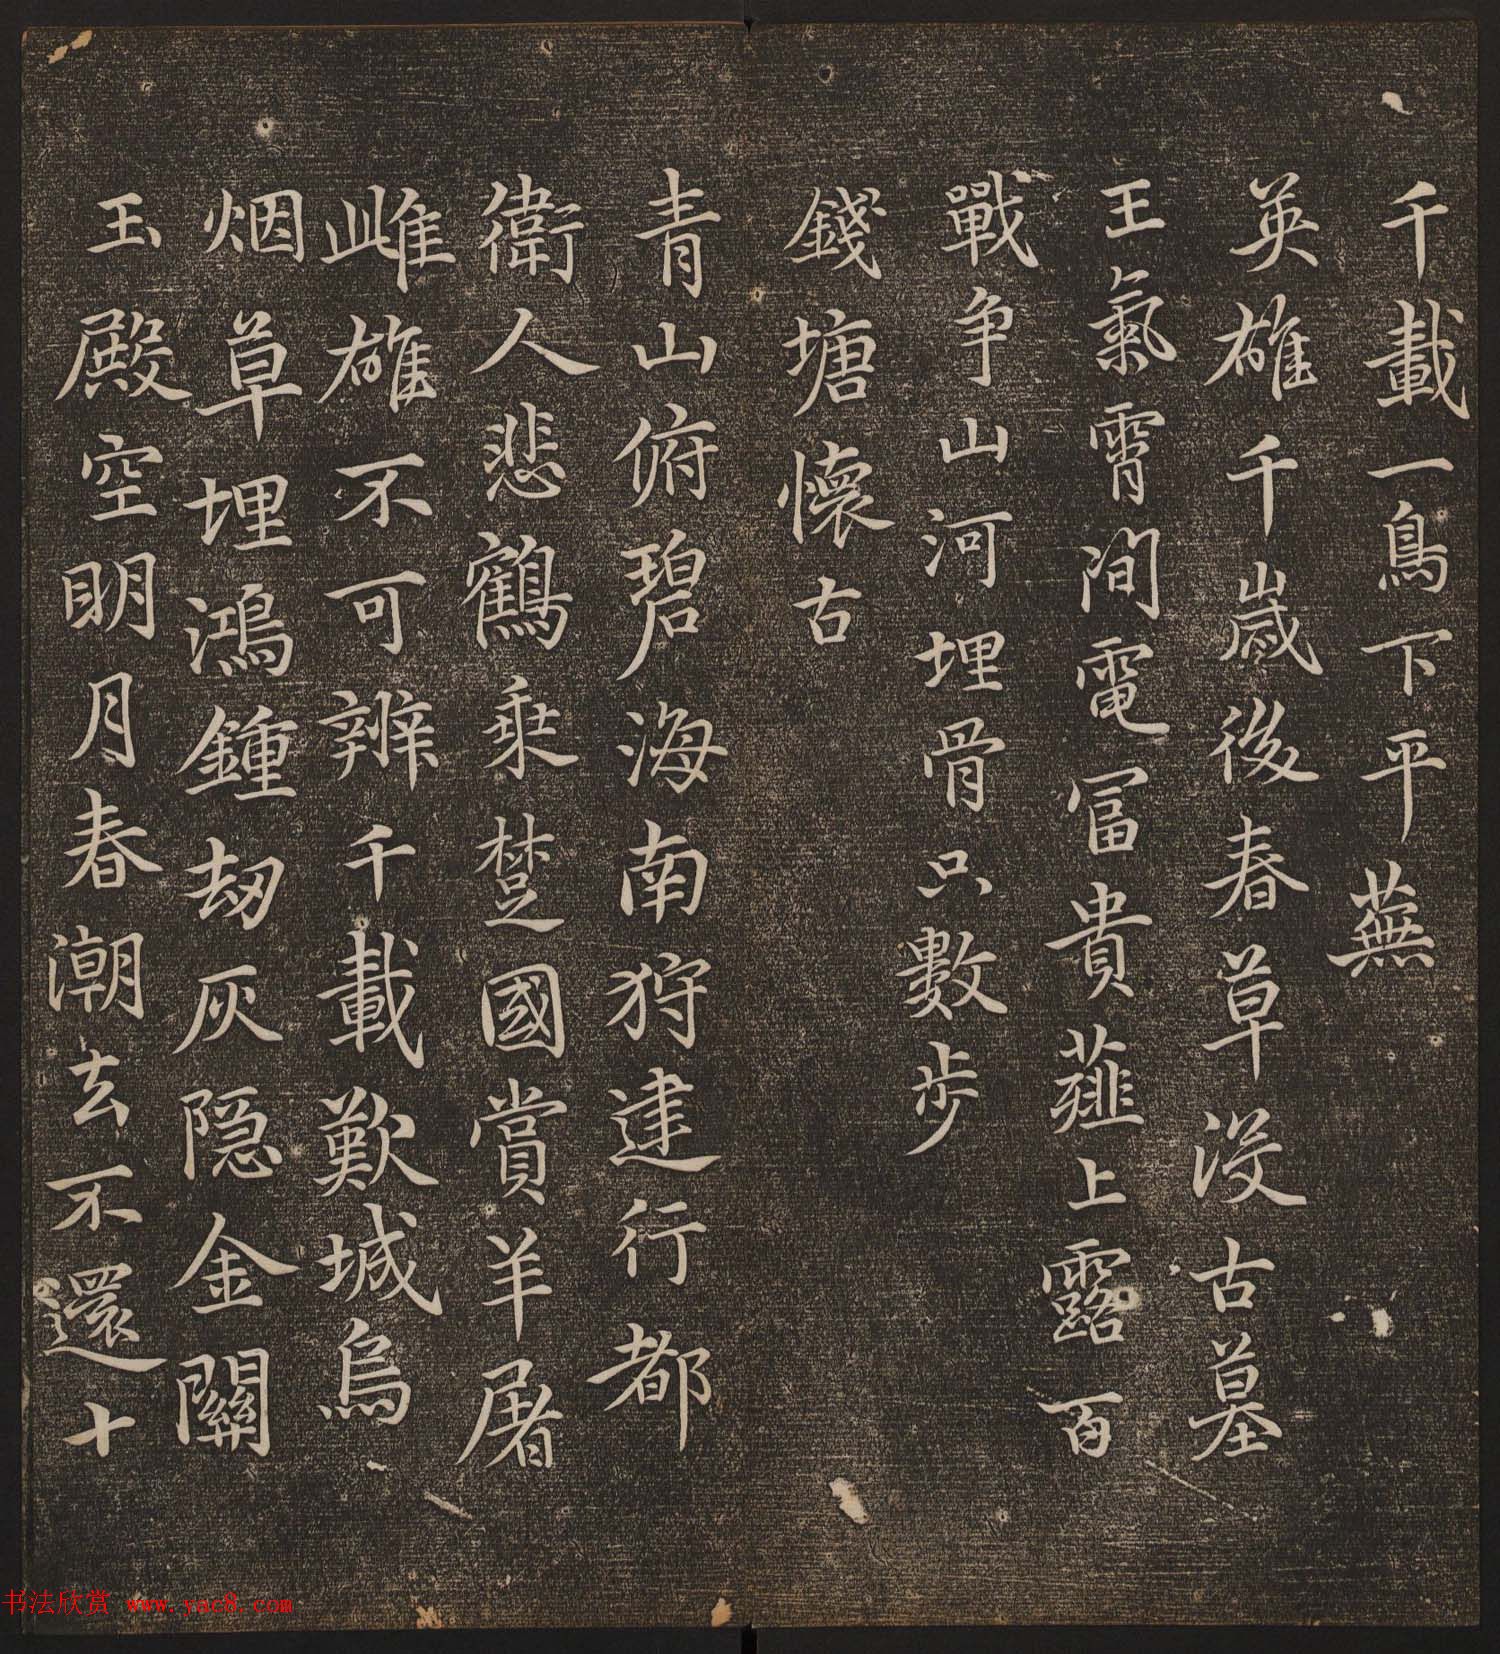 千載一鳥下平蕪
英雄千歲後春草沒古墓
王氣霄間電冨貴薤上露百
戰争山河埋骨只數步
錢塘懷古
青山俯碧海南狩建行都
衛人悲鶴乘楚國賞羊屠
雌雄不可辨千載歎城烏
烟草埋鴻鍾劫灰隐金關
玉殿空明月春潮去不還十
书法欣赏 www.yac8.com